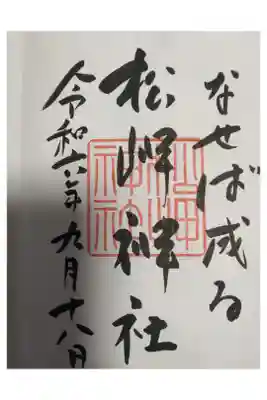 なせば成る
松岬神社
令和六年九月十八日